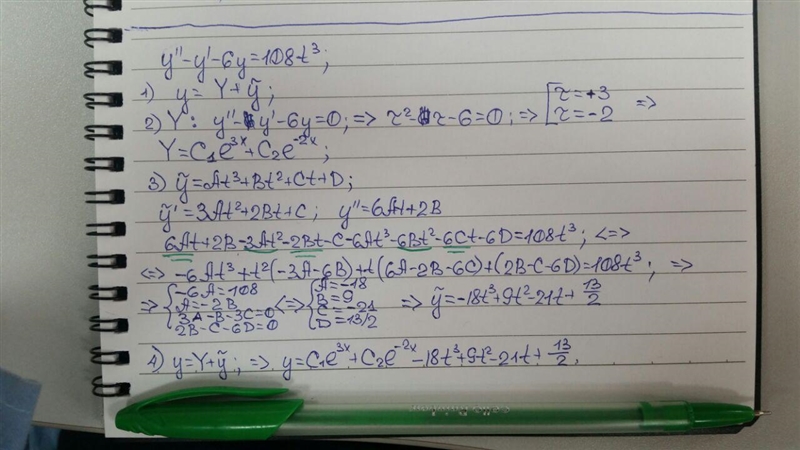 y''-y'-6y=108t³;
1) y=Y+ỹ;
2) Y: y''-y'-6y=0; => r²-r-6=0; => [r=+3 =>
r=-2
Y=C₁e³ˣ+C₂e⁻²ˣ;
3) ỹ=At³+Bt²+Ct+D;
ỹ'=3At²+2Bt+C; y''=6At+2B
6At+2B-3At²-2Bt-C-6At³-6Bt²-6Ct-6D=108t³; <=>
<=> -6At³+t²(-3A-6B)+t(6A-2B-6C)+(2B-C-6D)=108t³; =>
=> {-6A=108 <=> {A=-18 => ỹ=-18t³+9t²-21t+13/2
A=-2B B=9
3A-B-3C=0 C=-21
2B-C-6D=0 D=13/2
4) y=Y+ỹ; => y=C₁e³ˣ+C₂e⁻²ˣ-18t³+9t²-21t+13/2.